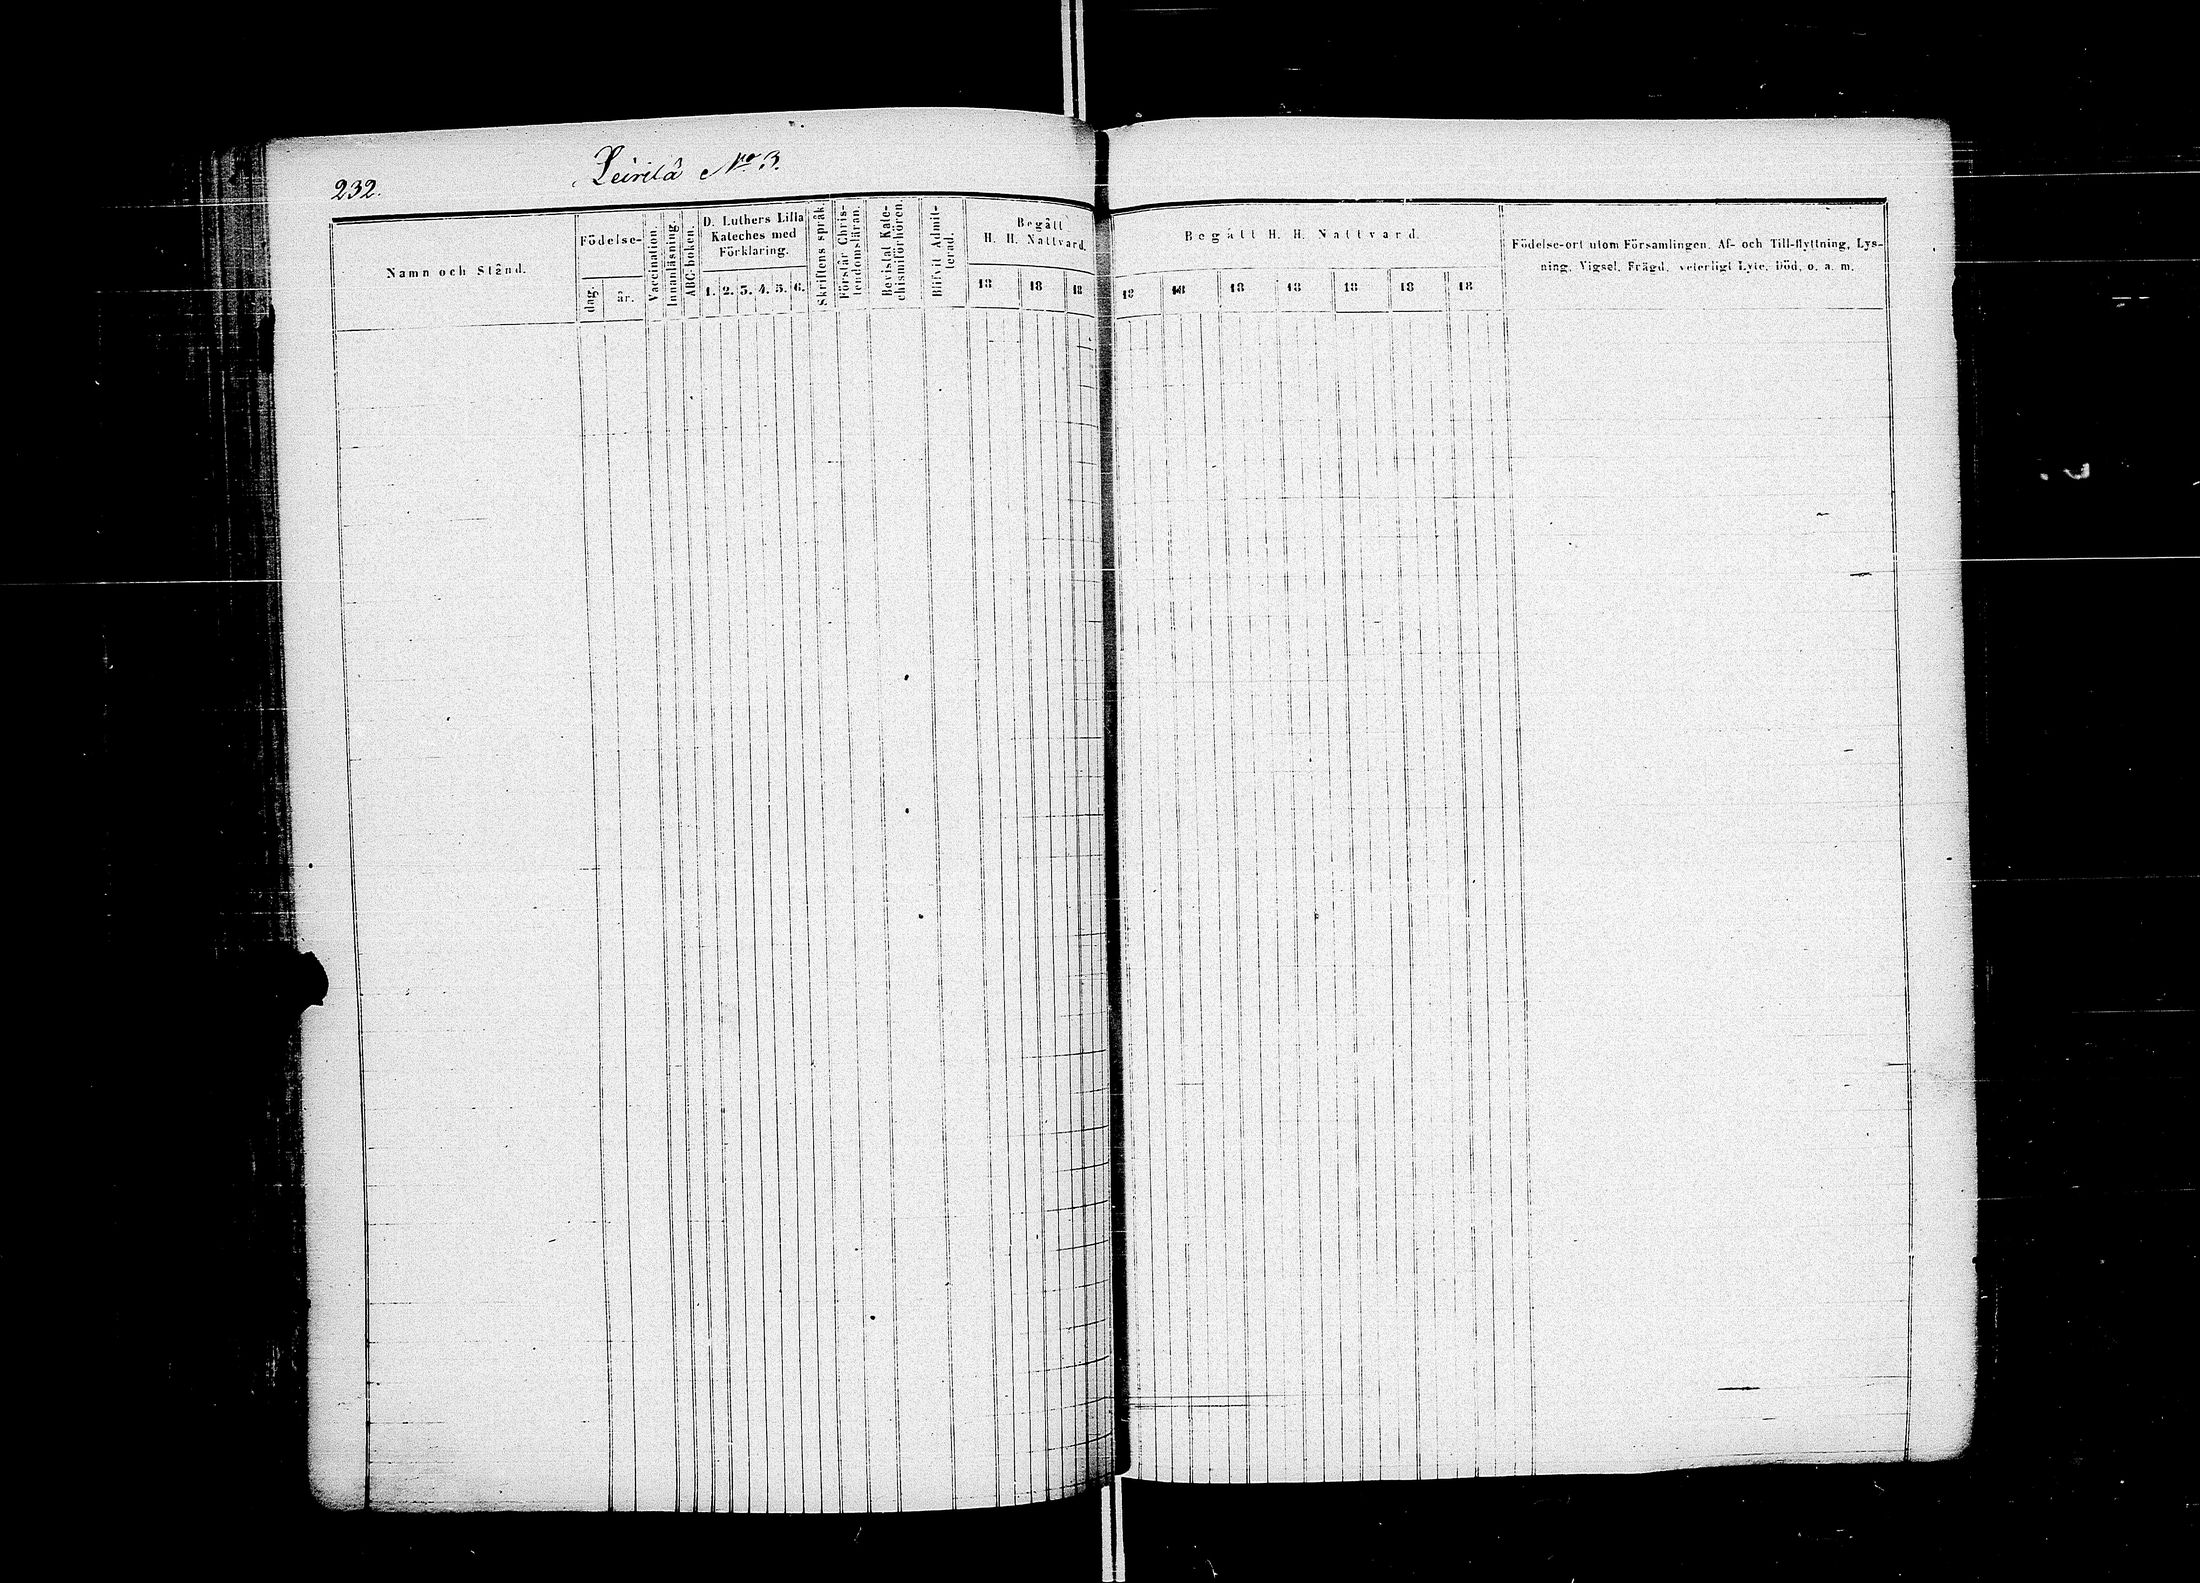 232.
Leirilä No 3.
Namn och Stånd.
Födelse-
dag.
år.
Vaccination.
Innanläsning.
ABC-boken.
D. Luthers Lilla
Kateches med
Förklaring.
1. 2. 3. 4. 5. 6.
Skriftens språk.
Förstår Chris-
tendomsläran.
Bevistat Kate-
chismiförhören.
Blifvit Admit-
terad.
Begått
H. H. Nattvard.
18 18 18
Begått H. H. Nattvard.
18 18 18 18 18 18 18
Födelse-ort utom Församlingen. Af- och Till-flyttning, Lys-
ning, Vigsel, Frägd, veterligt Lyte, Död, o. a. m.